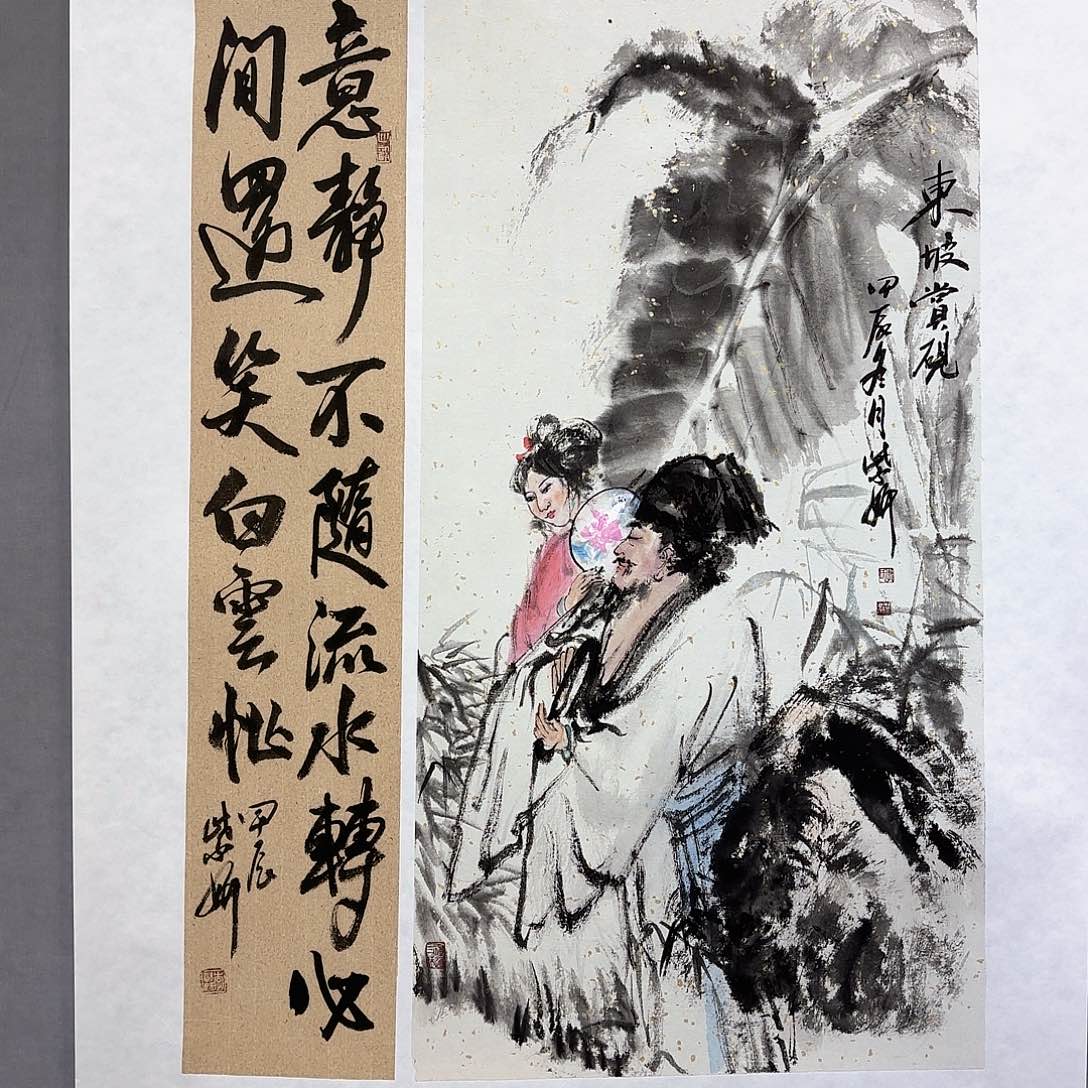 東坡賞硯
甲辰冬月紫妍
意靜不隨流水轉心
閒還笑白雲忙
甲辰
紫妍